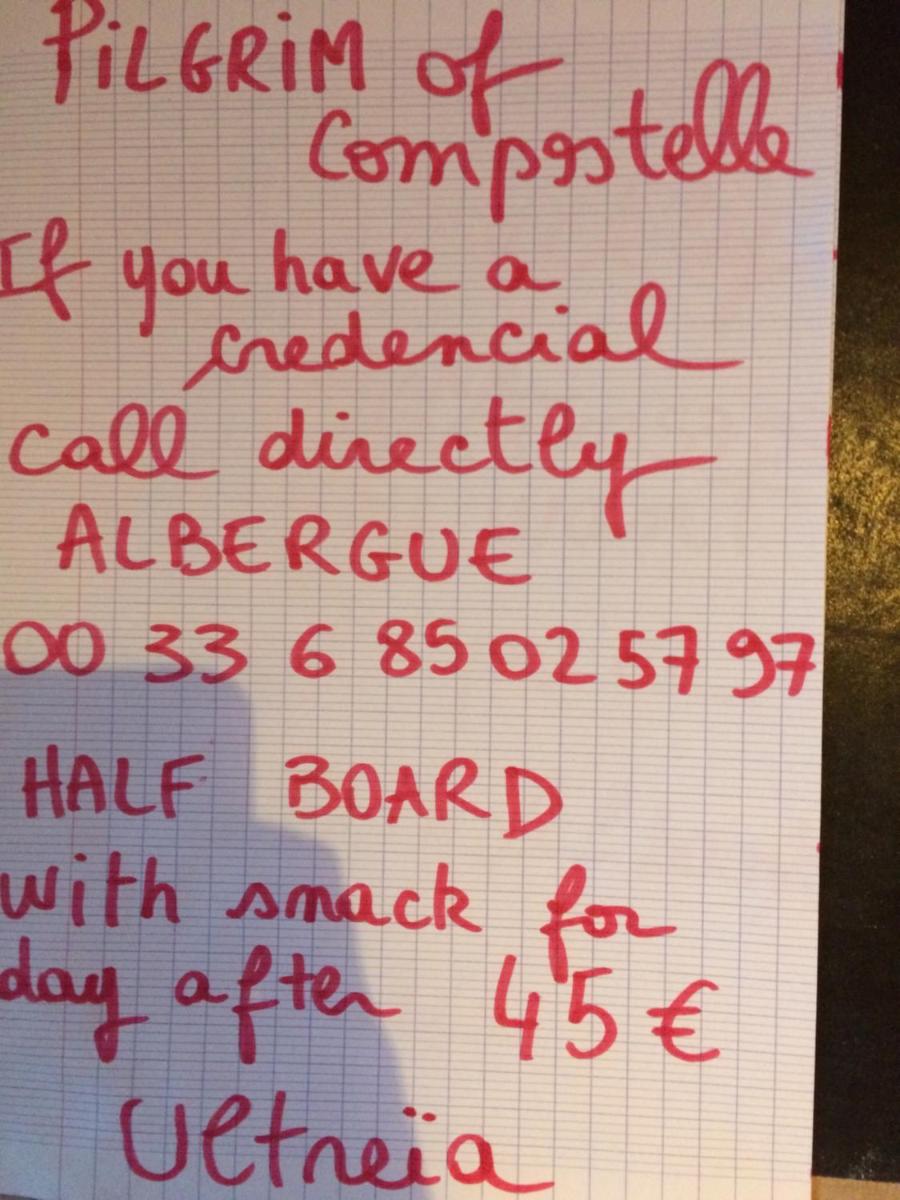 PiLGRiM of
Compostelle
If you have a
credencial
call directly
ALBERGUE
00 33 6 85 02 57 97
HALF BOARD
with snack for
day after 45 €
Ultreïa